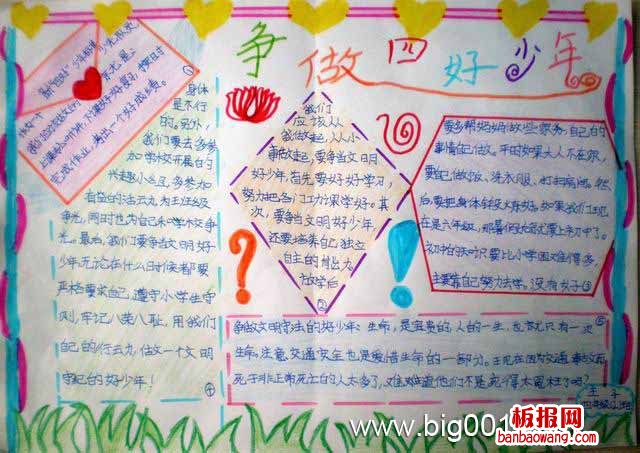 争做四好少年
我们
应该从
我做起,从小
事做起,要争当文明
好少年,首先要好好学习,
努力把各门功课学好。其
次,要争当文明好少年,
还要培养自己独立
自主的能力。
放学后
②
要多帮妈妈做些家务,自己的
事情自己做。平时如果大人不在家,
要自己做饭、洗衣服、打扫房间。然
后要把身体锻炼好。如果我们现
在是六年级,那暑假后就要上初中了。
初中的
主要靠自己努力去学。没有好
③
身体
是不行
的。另外,
我们要去多参
加学校开展的
兴趣小组,多参加
有益的活动,为班级
争光,同时也为自己和学校争
光。最后,我们要争当文明好
少年,无论在什么时候都要
严格要求自己,遵守小学生守
则,牢记八荣八耻,用我们
自己的行动,做一个文明
守纪的好少年!
④
争做文明守法的好少年:生命,是宝贵的,人的一生,也就只有一次
生命。注意交通安全也是爱惜生命的一部分。现在因为交通事故而
死于非正常死亡的人太多了,难道他们不是死得太冤枉了吗?
⑤
完成作业,考出一个好成绩。
①
www.big001.com
板报网
banbaowang.com